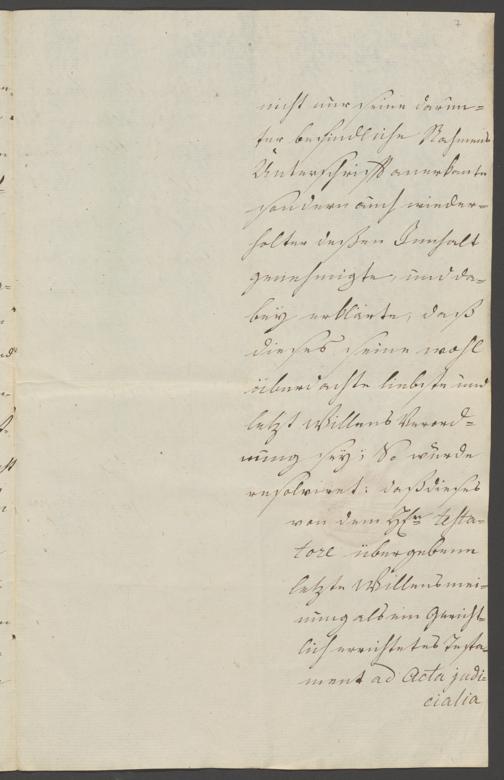 7
nicht nur seine darun=
ter befindliche Nahmens
Unterschrifft anerkante
sondern auch wieder=
holter deßen Innhalt
genehmigte, und da=
bey erklärte, daß
dieses seine wohl
überdachte liebste und
letzt Willens Verord=
nung sey; So wurde
resolviret: daß dieses
von dem Hrn testa=
tore übergebene
letzte Willensmei=
nung als ein Gericht=
lich errichtetes Testa=
ment ad Acta judi=
cialia